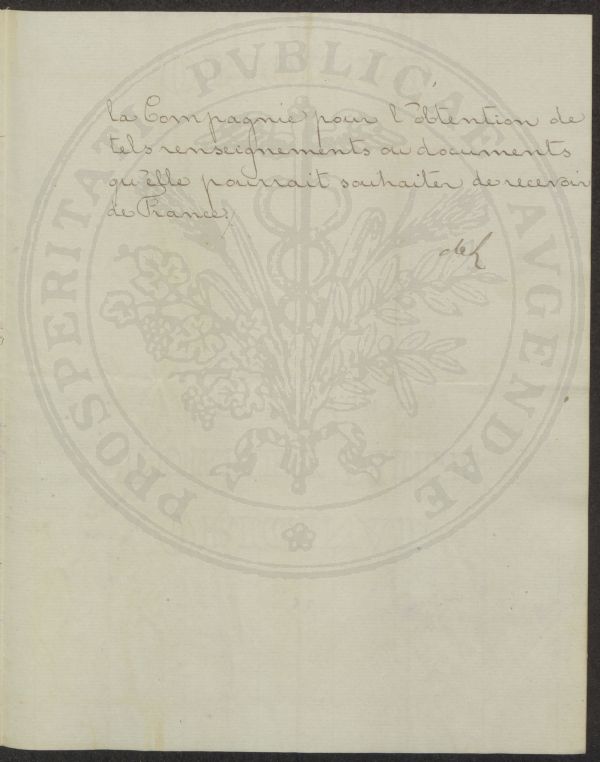 PROSPERITATI PVBLICAE AVGENDAE
la Compagnie pour l'obtention de
tels renseignements ou documents
qu'elle pourrait souhaiter de recevoir
de France.